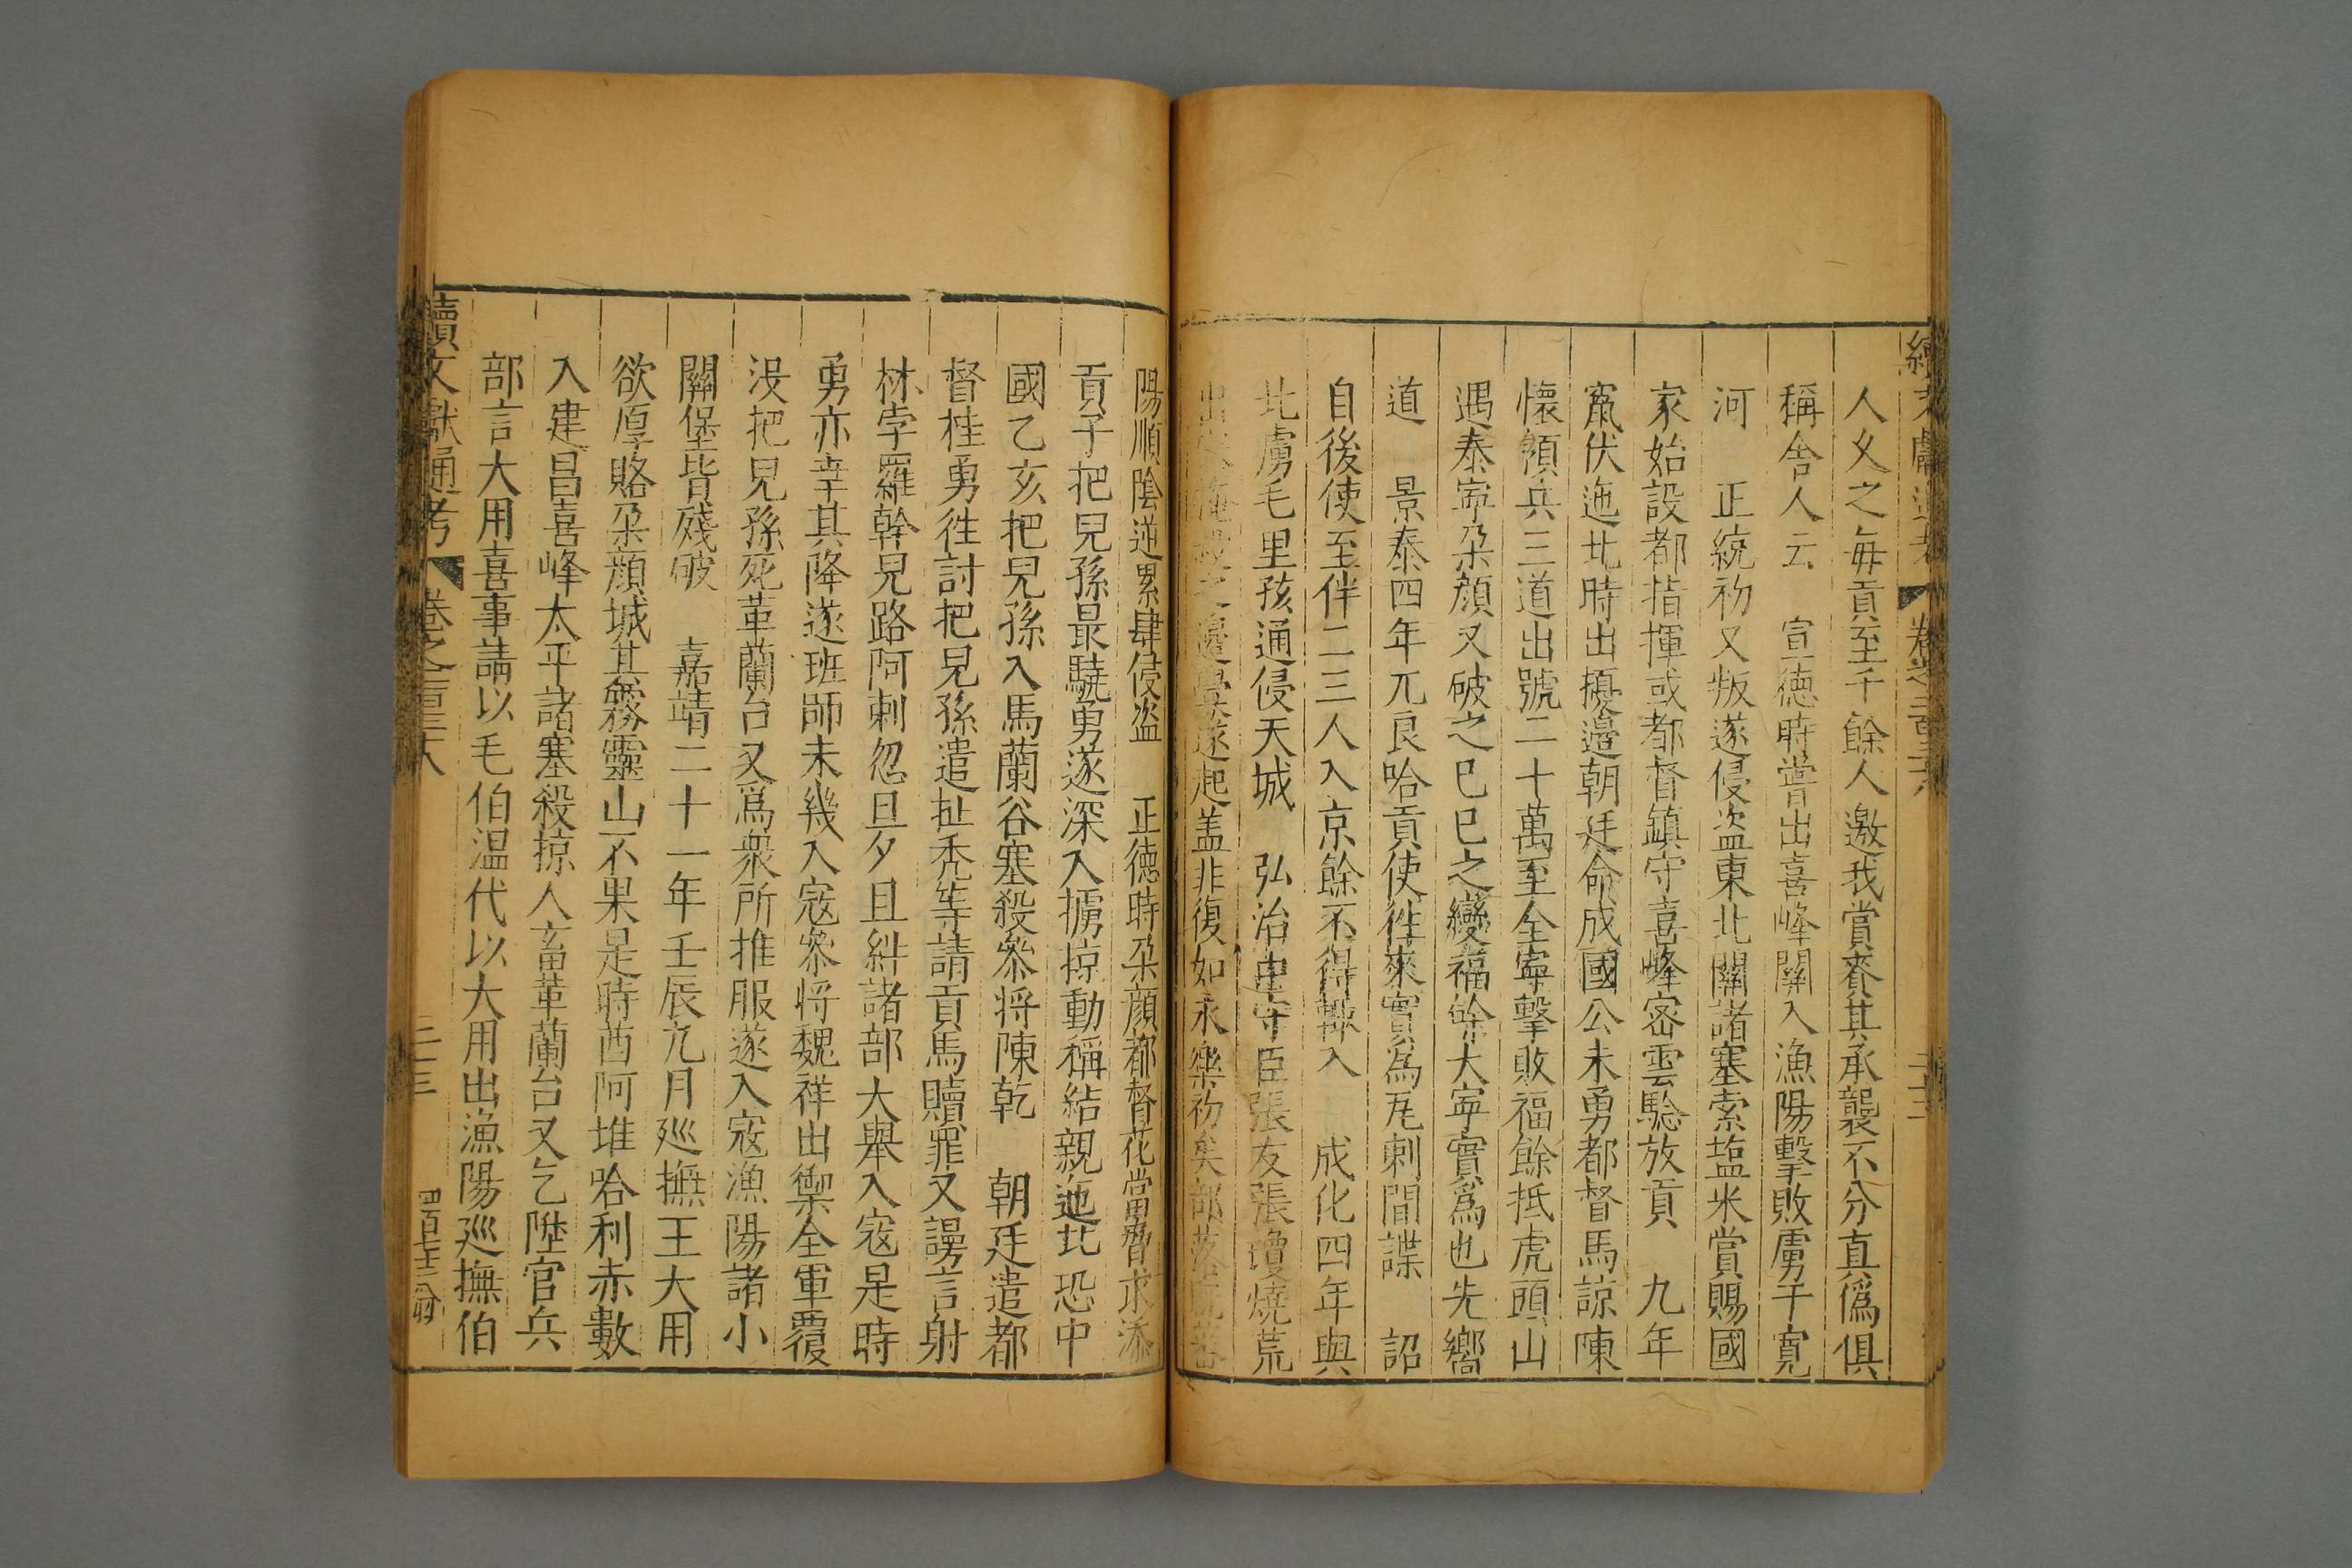 續文獻通考 卷之二百三十六 二十二
人久之每貢至千餘人邀我賞賚其承襲不分真僞俱
稱舍人云 宣德時嘗出喜峰關入漁陽擊敗虜于寬
河 正統初又叛遂侵盗東北關諸塞索塩米賞賜國
家始設都指揮或都督鎮守喜峰宻雲驗放貢 九年
竄伏迤北時出擾邊朝廷命成國公朱勇都督馬諒陳
懷領兵三道出號二十萬至全寧擊敗福餘抵虎頭山
遇泰寧朶顔又破之已巳之變福餘大寧實爲也先嚮
道 景泰四年兀良哈貢使徃來實爲瓦剌間諜 詔
自後使至伴二三人入京餘不得輙入 成化四年與
北虜毛里孩通侵天城 弘治中守臣張友張瓊燒荒
出塞掩殺之邊釁遂起盖非復如永樂初矣部落既蕃
陽順隂逆累肆侵盗 正德時朶顔都督花當脅求添
貢子把兒孫最驍勇遂深入擄掠動稱結親迤北恐中
國乙亥把兒孫入馬蘭谷塞殺叅将陳乾 朝廷遣都
督桂勇徃討把兒孫遣扯禿等請貢馬贖罪又謾言射
林孛羅幹兒路阿剌忽旦夕且糾諸部大舉入寇是時
勇亦幸其降遂班師未幾入寇叅将魏祥出禦全軍覆
没把兒孫死革蘭台又爲衆所推服遂入寇漁陽諸小
關堡皆殘破 嘉靖二十一年壬辰九月廵撫王大用
欲厚賂朶顔城其霧靈山不果是時酋阿堆哈利赤數
入建昌喜峰太平諸塞殺掠人畜革蘭台又乞陞官兵
部言大用喜事請以毛伯温代以大用出漁陽廵撫伯
續文獻通考 卷之二百三十六 二十三